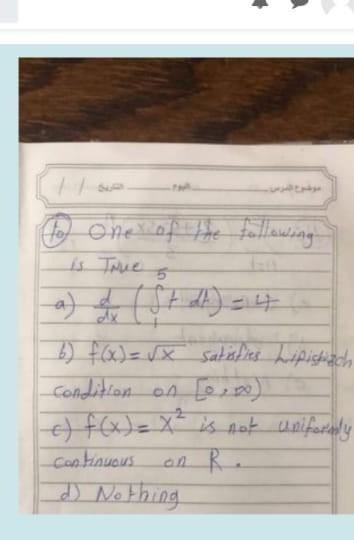 موضوع الدرس اليوم التاريخ / /
(10) One of the following
is True
a) d/dx (∫₁⁵ t dt) = 4
b) f(x) = √x satisfies Lipistizch
condition on [0, ∞)
c) f(x) = x² is not uniformly
continuous on R.
d) Nothing